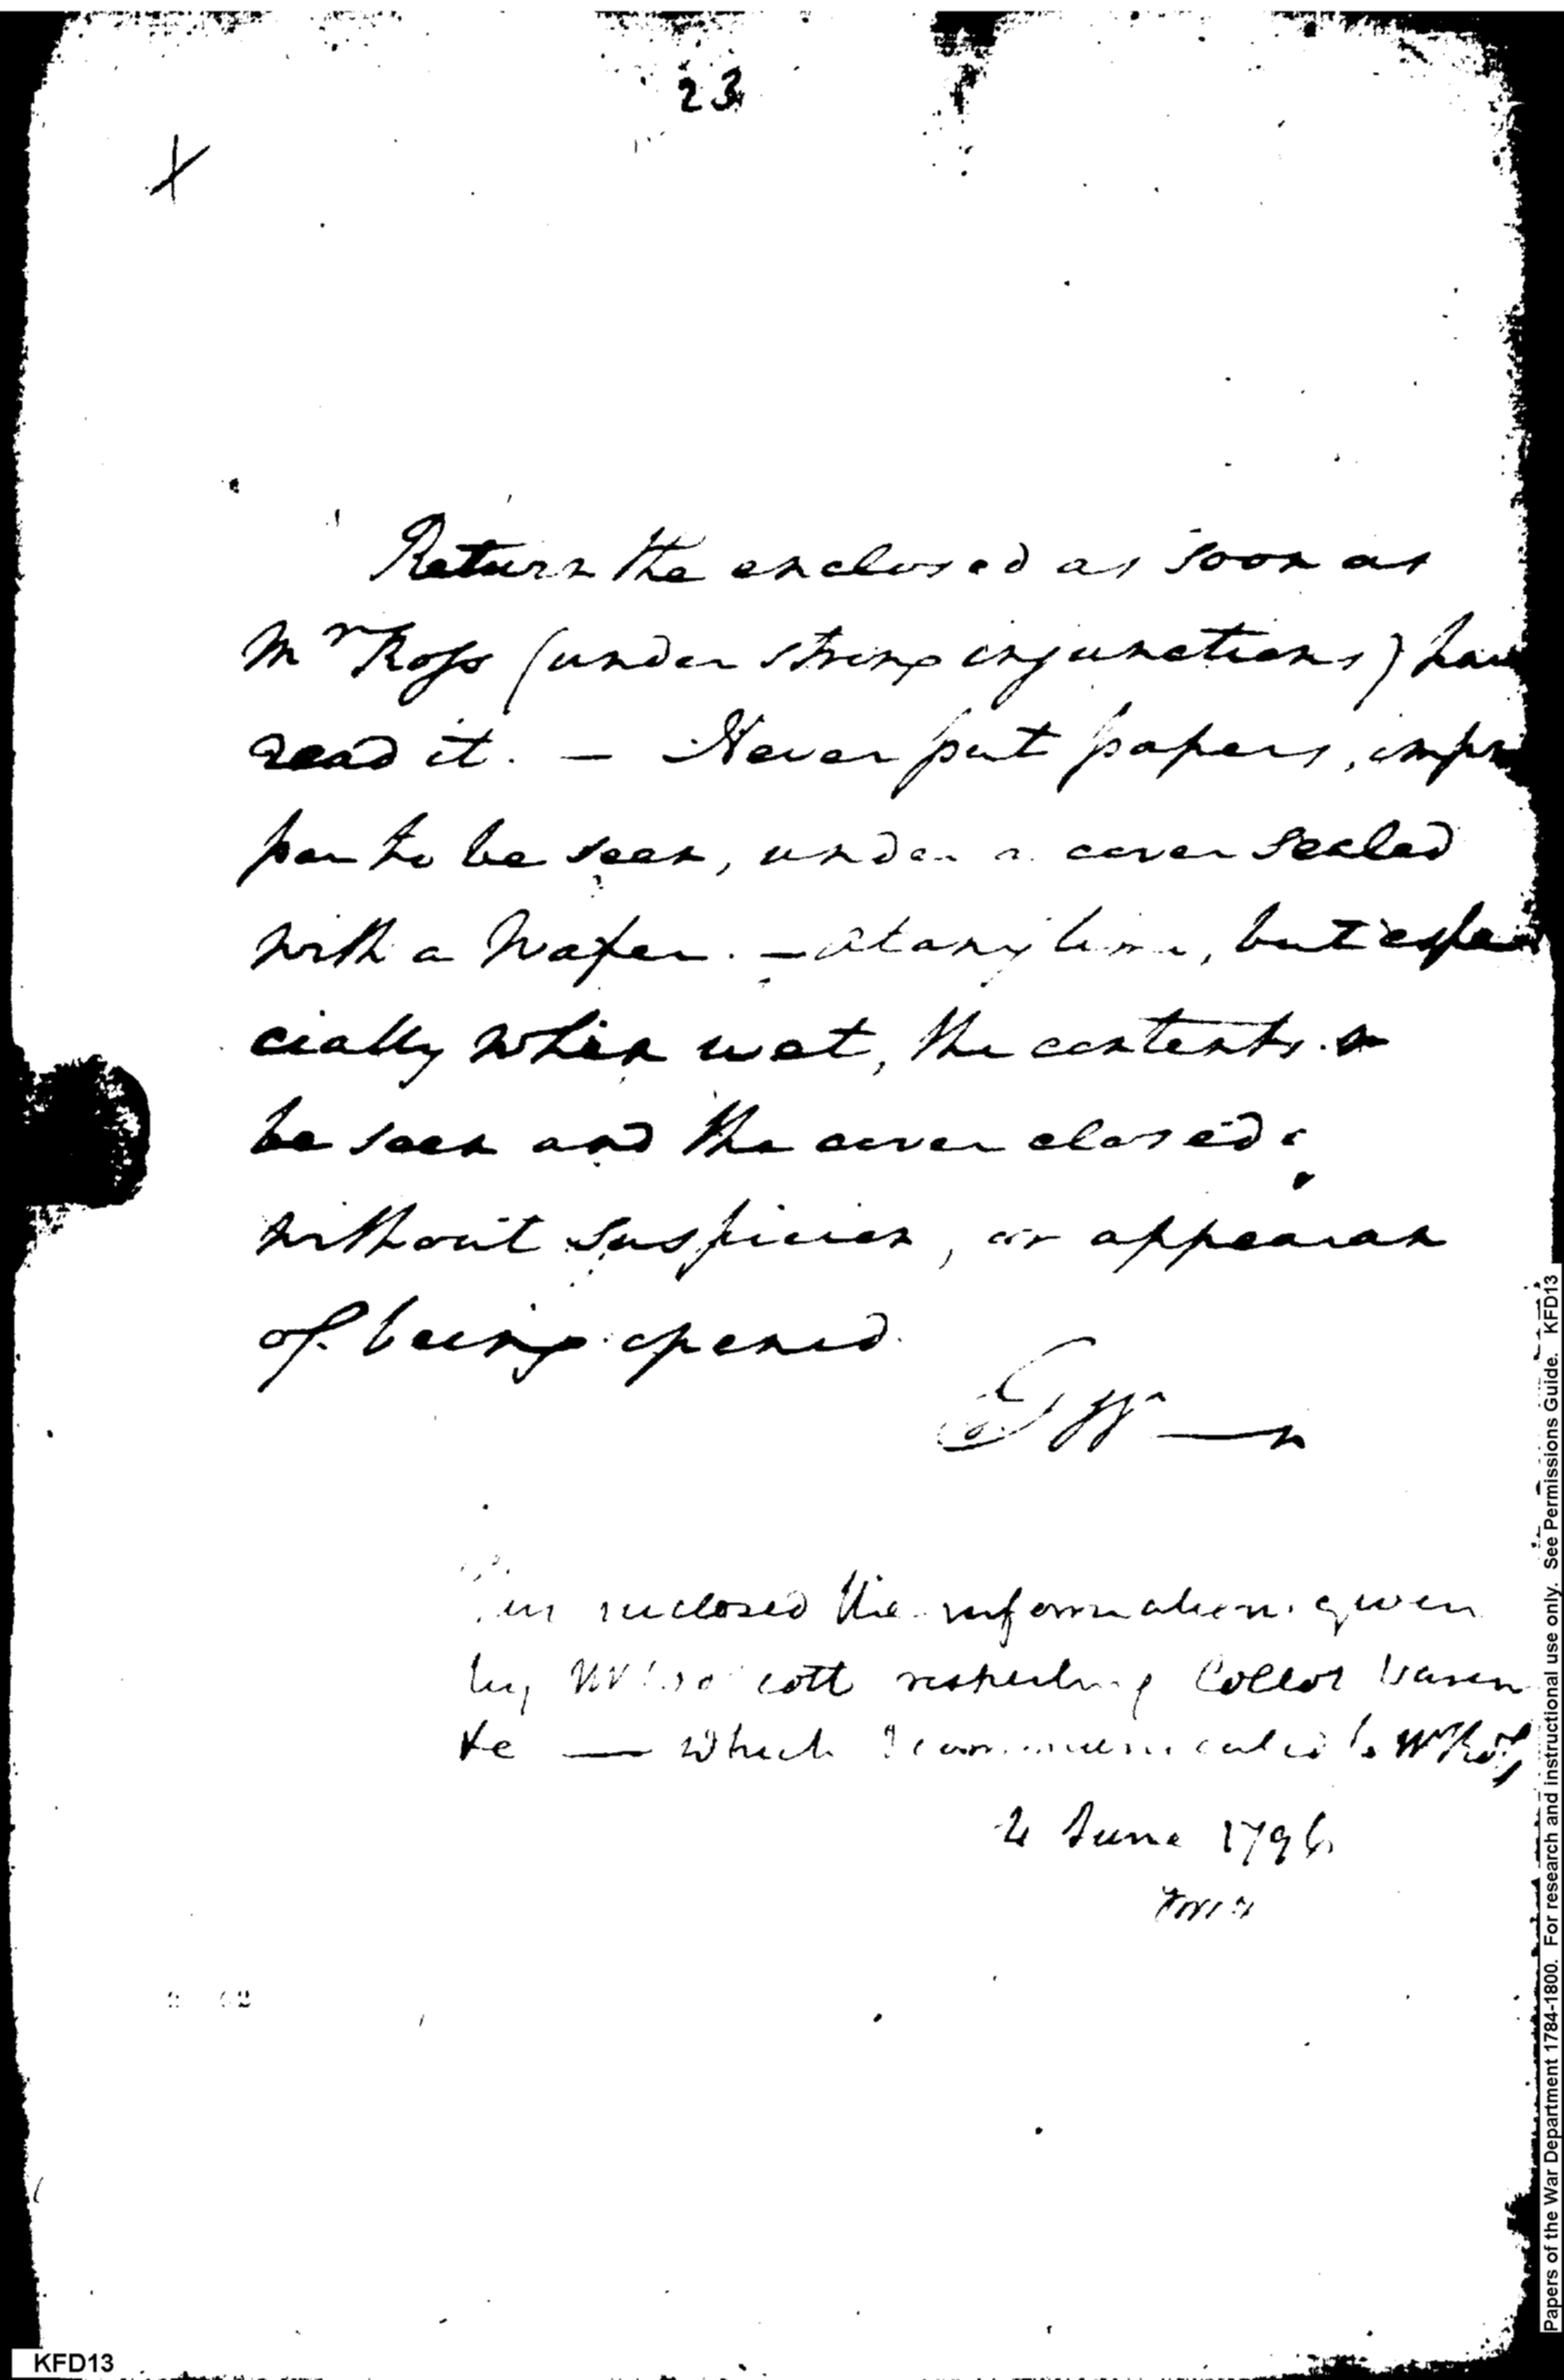 23
Return the enclosed as soon as
Mr Ross (under strong injunctions) have
read it. — Never put papers, impro
per to be seen, under a cover sealed
with a Wafer. — At any time, but espe
cially when wet, the contents
be seen and the cover closed
without suspicion, or appearan
of being opened.
GW—n
inclosed the information given
by Mr Wolcott respecting Collot Waren
te — which I communicated to Mr Ross
4 June 1796
Papers of the War Department 1784-1800. For research and instructional use only. See Permissions Guide. KFD13
KFD13